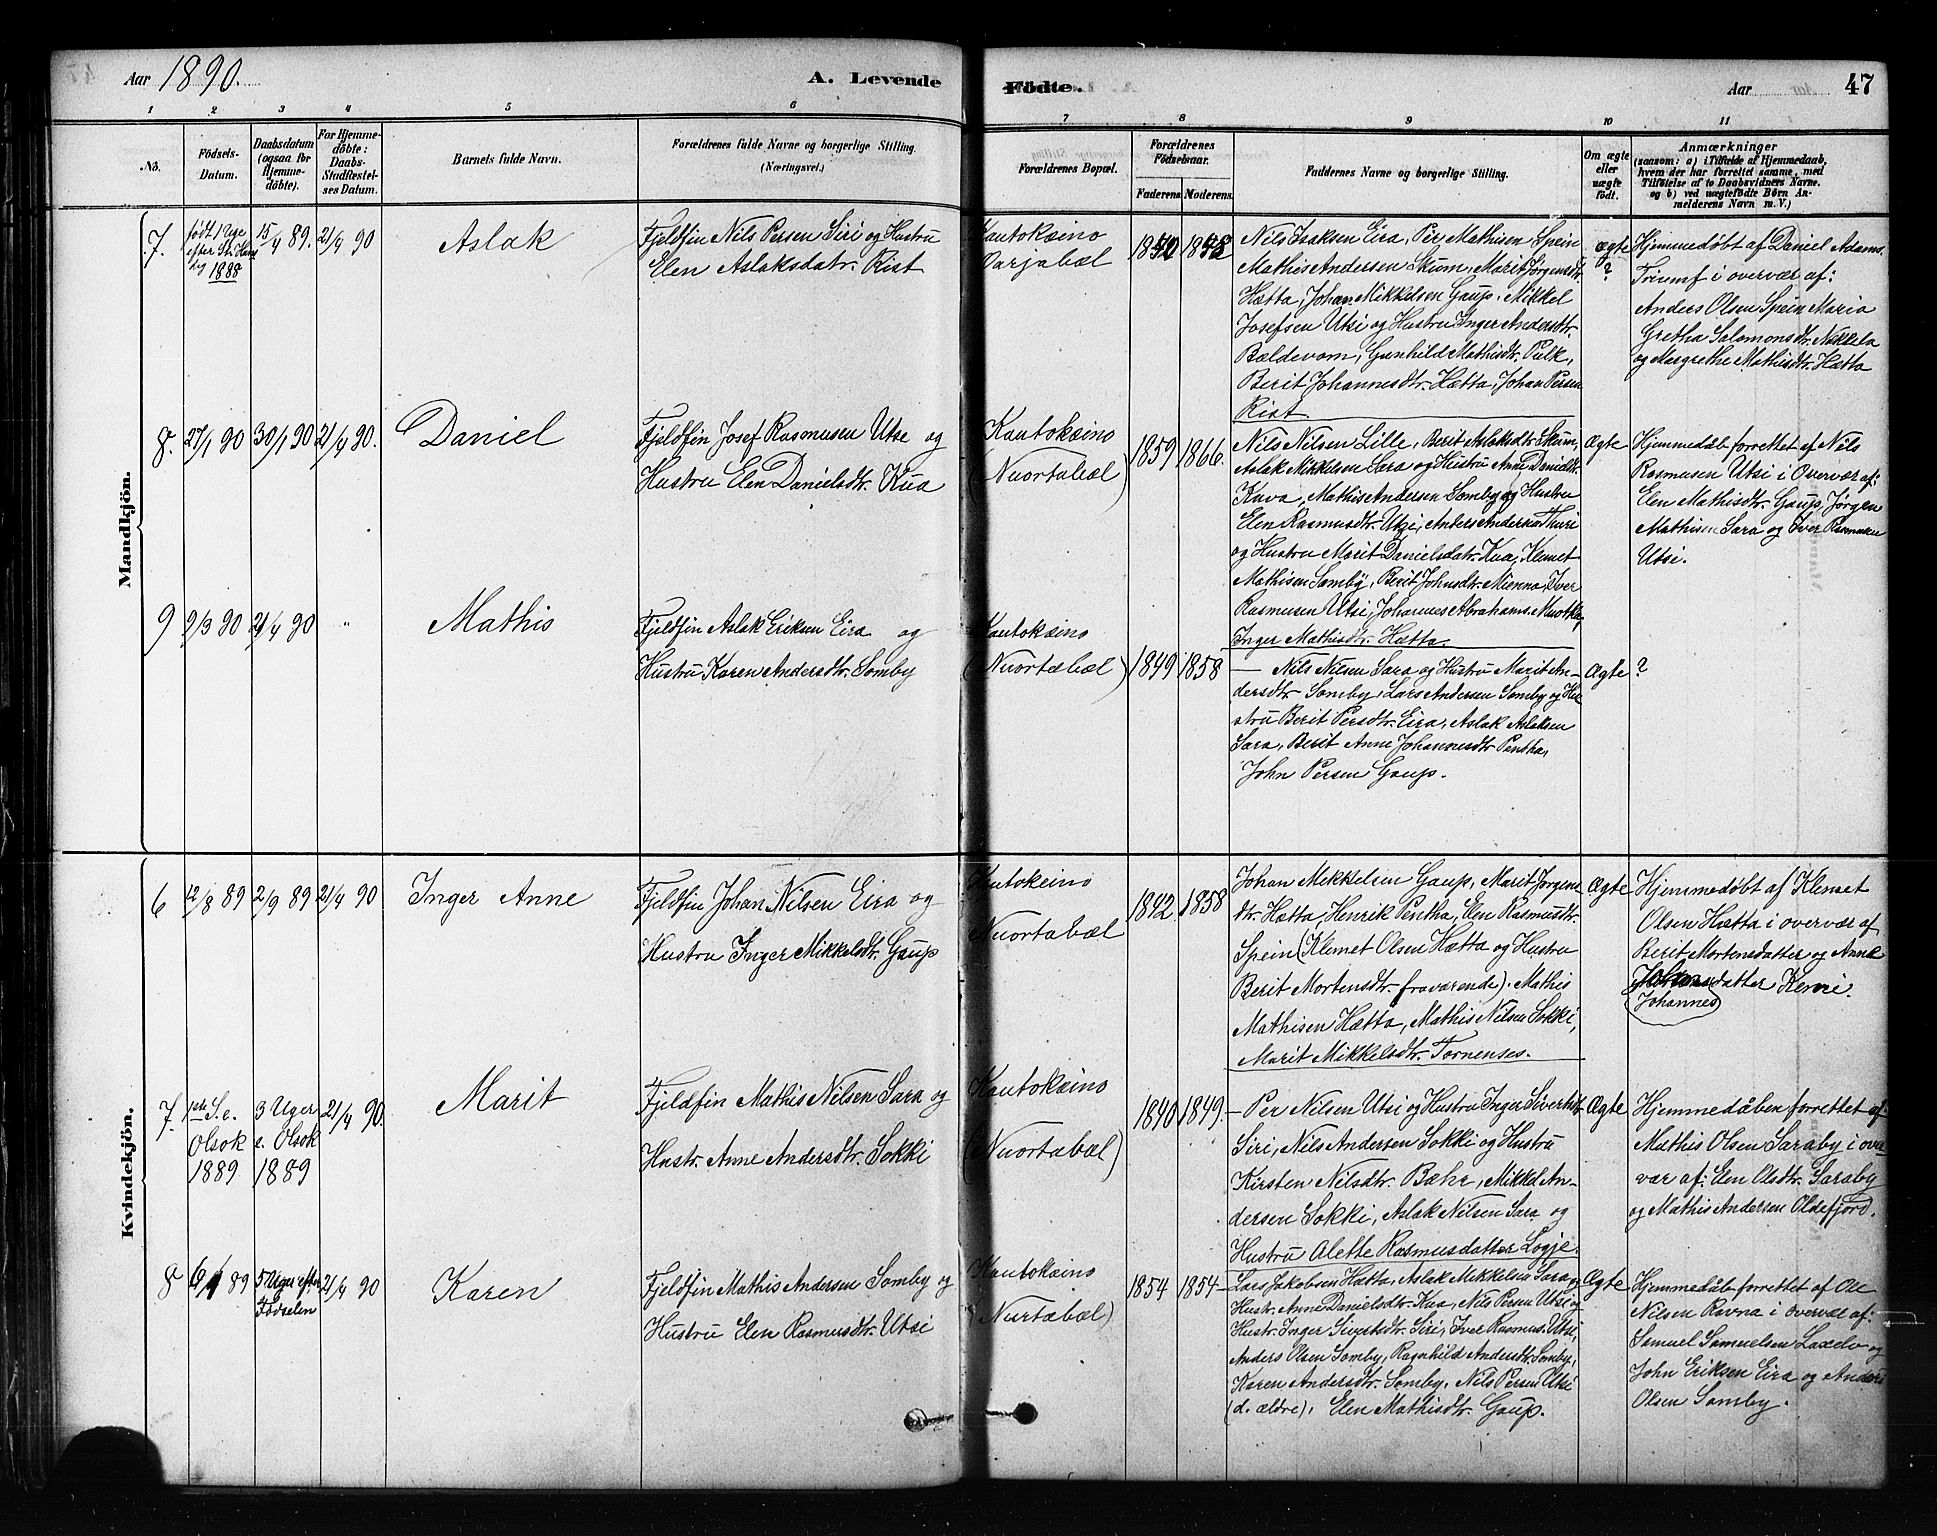 Aar 1890.
A. Levende Födte.
Aar 47
1 2 3 4 5 6 7 8 9 10 11
No.
Födsels-
Datum.
Daabsdatum
(ogsaa for
Hjemme-
döbte).
For Hjemme-
döbte:
Daabs-
Stadfæstel-
ses Datum.
Barnets fulde Navn.
Forældrenes fulde Navne og borgerlige Stilling.
(Næringsvei.)
Forældrenes Bopæl.
Forældrenes
Födselsaar.
Faderens Moderens
Faddernes Navne og borgerlige Stilling.
Om ægte
eller
uægte
födt.
Anmærkninger
(saasom: a) i Tilfælde af Hjemmedaab,
hvem der har forrettet samme, med
Tilföielse af to Daabsvidners Navne.
og b) ved uægtefödte Börn An-
melderens Navn m. V.)
Mandkjön.
7.
født 1 Uge
efter St. Hans
dg 1888
15/4 89.
21/4 90
Aslak
Fjeldfin Nils Persen Siri og Hustru
Elen Aslaksdatr. Rist
Kautokeino
Varjabæl
1852 1852
Nils Isaksen Eira, Per Mathisen Spein
Mathis Andersen Skum, Marit Jörgensdtr.
Hætta, Johan Mikkelsen Gaup, Mikkel
Josefsen Utsi og Hustru Inger Andersdtr.
Bældevom, Gunhild Mathisdtr. Pulk,
Berit Johannesdtr. Hætta, Johan Persen
Rist.
ægte
?
Hjemmedøbt af Daniel Adams.
Triumf i overvær af:
Anders Olsen Spein Maria
Gretha Salomonsdtr. Nikkela
og Margrethe Mathisdtr. Hætta
8.
27/1 90
30/1 90
21/4 90.
Daniel
Fjeldfin Josef Rasmusen Utse og
Hustru Elen Danielsdtr. Kua
Kautokeino
(Nuortabæl)
1859 1866.
Nils Nilsen Lille, Berit Aslaksdtr Skum,
Aslak Mikkelsen Sara og Hustru Anne Danielsdtr.
Kava, Mathis Andersen Somby og Hustru
Elen Rasmusdtr. Utzi, Anders Anderson Thuri
og Hustru Marit Danielsdatr. Kua, Klemet
Mathisen Somby, Berit Johnsdtr. Mienna, Iver
Rasmusen Utsi, Johannes Abrahams. Muotka,
Inger Mathisdtr. Hætta.
Ægte
Hjemmedåb forrettet af Nils
Rasmusen Utsi i Overvær af:
Elen Mathisdtr. Gaup, Jörgen
Mathisen Sara og Iver Rasmusen
Utsi.
9
9/3 90
21/4 90
"
Mathis
Fjeldfin Aslak Eriksen Eira og
Hustru Karen Andersdtr. Somby
Kautokeino
(Nuortabæl)
1849 1858
— Nils Nilsen Sara og Hustru Marit An-
dersdtr Somby, Lars Andersen Somby og Hu-
stru Berit Persdtr. Eira, Aslak Aslaksen
Sara, Berit Anne Johannesdtr Pentha,
John Persen Gaup.
Ægte
?
Kvindekjön.
6
12/8 89
2/9 89
21/4 90
Inger Anne
Fjeldfin Johan Nilsen Eira og
Hustru Inger Mikkelsdtr. Gaup
Kautokeino
Nuortabæl
1842 1858
Johan Mekkelsen Gaup, Marit Jorgens
dtr. Hætta, Henrik Pentha, Elen Rasmusdtr.
Spein (Klemet Olsen Hætta og Hustru
Berit Mortensdtr. fraværende). Mathis
Mathisen Hætta, Mathis Nilsen Sokki,
Marit Mikkelsdtr. Tornenses.
Ægte
Hjemmedøbt af Klemet
Olsen Hætta i overvær af
Berit Mortensdatter og Anne
datter Kemi.
(Johannes)
7.
1ste S. e.
Olsok
1889
3 Uger
e. Olsok
1889
21/4 90.
Marit
Fjeldfin Mathis Nilsen Sara og
Hustr. Anne Andersdtr. Sokki
Kautokeino
(Nuortabæl)
1840 1849.
— Per Nilsen Utsi og Hustru Inger Siversdtr
Siri, Nils Andersen Sokki og Hustru
Kirsten Nilsdtr. Bæhr, Mikkel An-
dersen Sokki, Aslak Nilsen Sara og
Hustru Alette Rasmusdatter Logje.
Ægte
Hjemmedåben forrettet af:
Mathis Olsen Saraby i over
vær af: Elen Olsdtr. Saraby
og Mathis Andersen Oldefjord.
8
89
5 Uger efter
Fødselen
21/4 90
Karen
Fjeldfin Mathis Andersen Somby og
Hustru Elen Rasmusdtr. Utsi
Kautokeino
(Nurtabæl)
1854 1854
Lars Jakobsen Hætta, Aslak Mikkelsen Sara og
Hustr. Anne Danielsdtr. Kua, Nils Persen Utsi og
Hustr. Inger Siversdtr. Siri, Iver Rasmus. Utsi,
Anders Olsen Somby, Ragnhild Andersdtr. Somby,
Karen Andersdtr. Somby, Nils Persen Utsi
(d. ældre), Elen Mathisdtr. Gaup.
Ægte
Hjemmedåb forrettet af Ole
Nilsen Ravna i overvær af:
Samuel Samuelsen og
John Eriksen Eira og Anders
Olsen Somby.